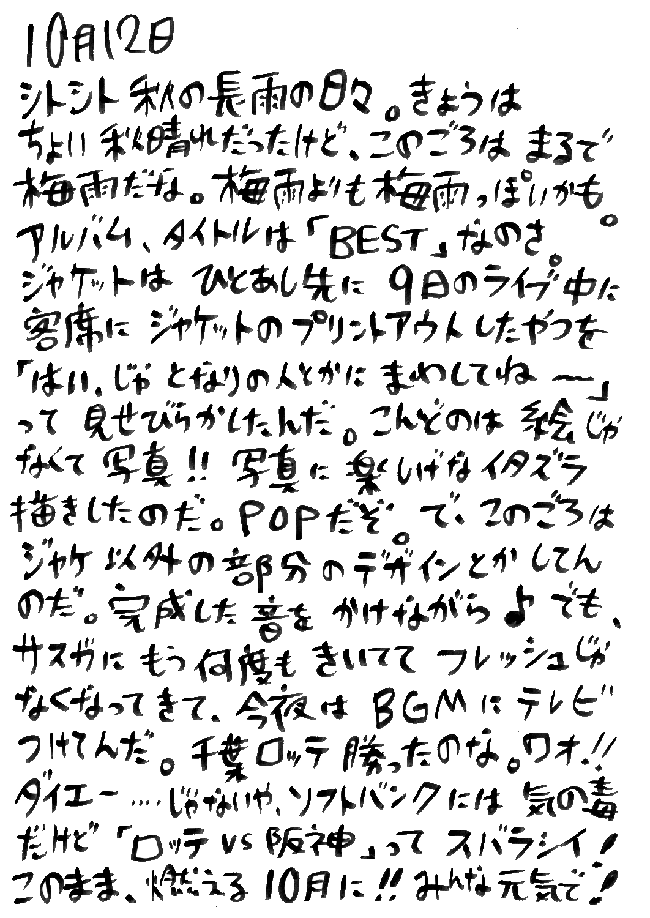 10月12日
シトシト秋の長雨の日々。きょうは
ちょい秋晴れだったけど、このごろは まるで
梅雨だな。梅雨よりも梅雨っぽいかも。
アルバム、タイトルは「BEST」なのさ。
ジャケットは ひとあし先に 9日のライブ中に
客席に ジャケットのプリントアウトしたやつを
「はい、じゃ となりの人とかに まわしてね 〜」
って 見せびらかしたんだ。こんどのは 絵じゃ
なくて 写真!! 写真に 楽しげなイタズラ
描きしたのだ。POPだぞ。で、このごろは
ジャケ以外の部分のデザインとかしてん
のだ。完成した音を かけながら♪ でも、
サスガに もう何度も きいてて フレッシュじゃ
なくなってきて、今夜は BGMにテレビ
つけてんだ。千葉ロッテ勝ったのな。ワオ!!
ダイエー‥‥じゃないや、ソフトバンクには 気の毒
だけど「ロッテ vs 阪神」って スバラシイ!
このまま、燃える10月に!! みんな元気で!